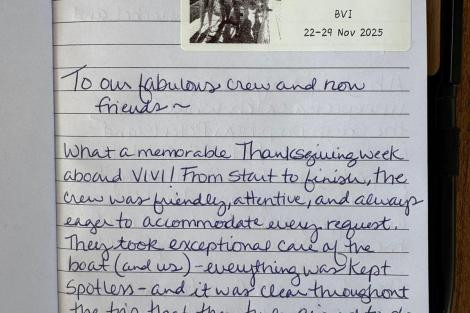 BVI
22-29 Nov 2025
To our fabulous crew and now
friends ~
What a memorable Thanksgiving week
aboard VIVI! From start to finish, the
crew was friendly, attentive, and always
eager to accommodate every request.
They took exceptional care of the
boat (and us) - everything was kept
spotless - and it was clear throughout
the trip that they